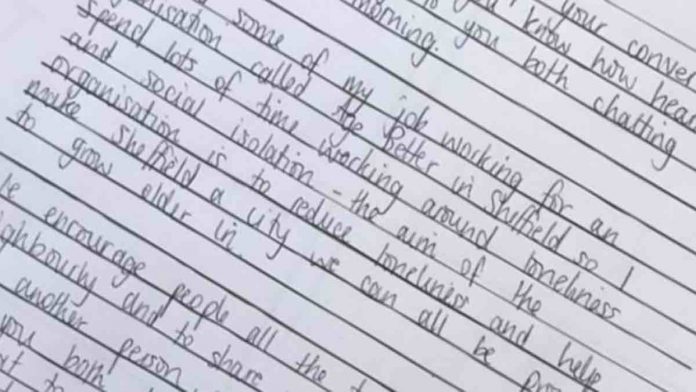 your conve
you know how hear
to you both chatting
morning.
some of my job working for an
alisation called Age Better in Sheffield so I
spend lots of time working around loneliness
and social isolation - the aim of the
organisation is to reduce loneliness and help
make Sheffield a city we can all be
to grow older in.
encourage people all the
ghbourly and to share
another person
you both